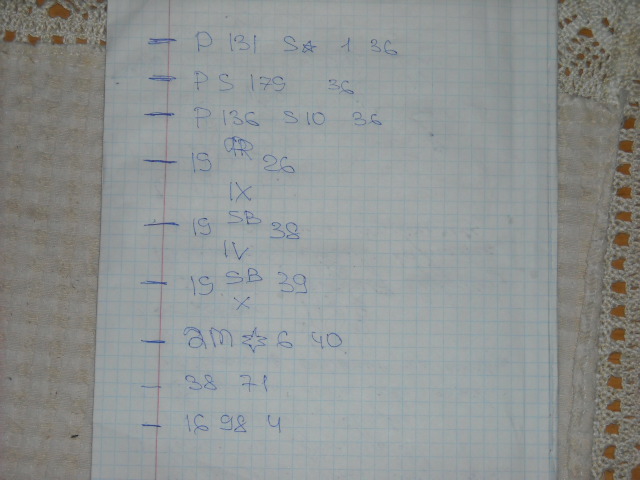 P 131 S★ 1 36
P S 179 36
P 136 S10 36
19 26
IX
19 SB 38
IV
19 SB 39
X
am ☆ 6 40
38 71
16 98 4